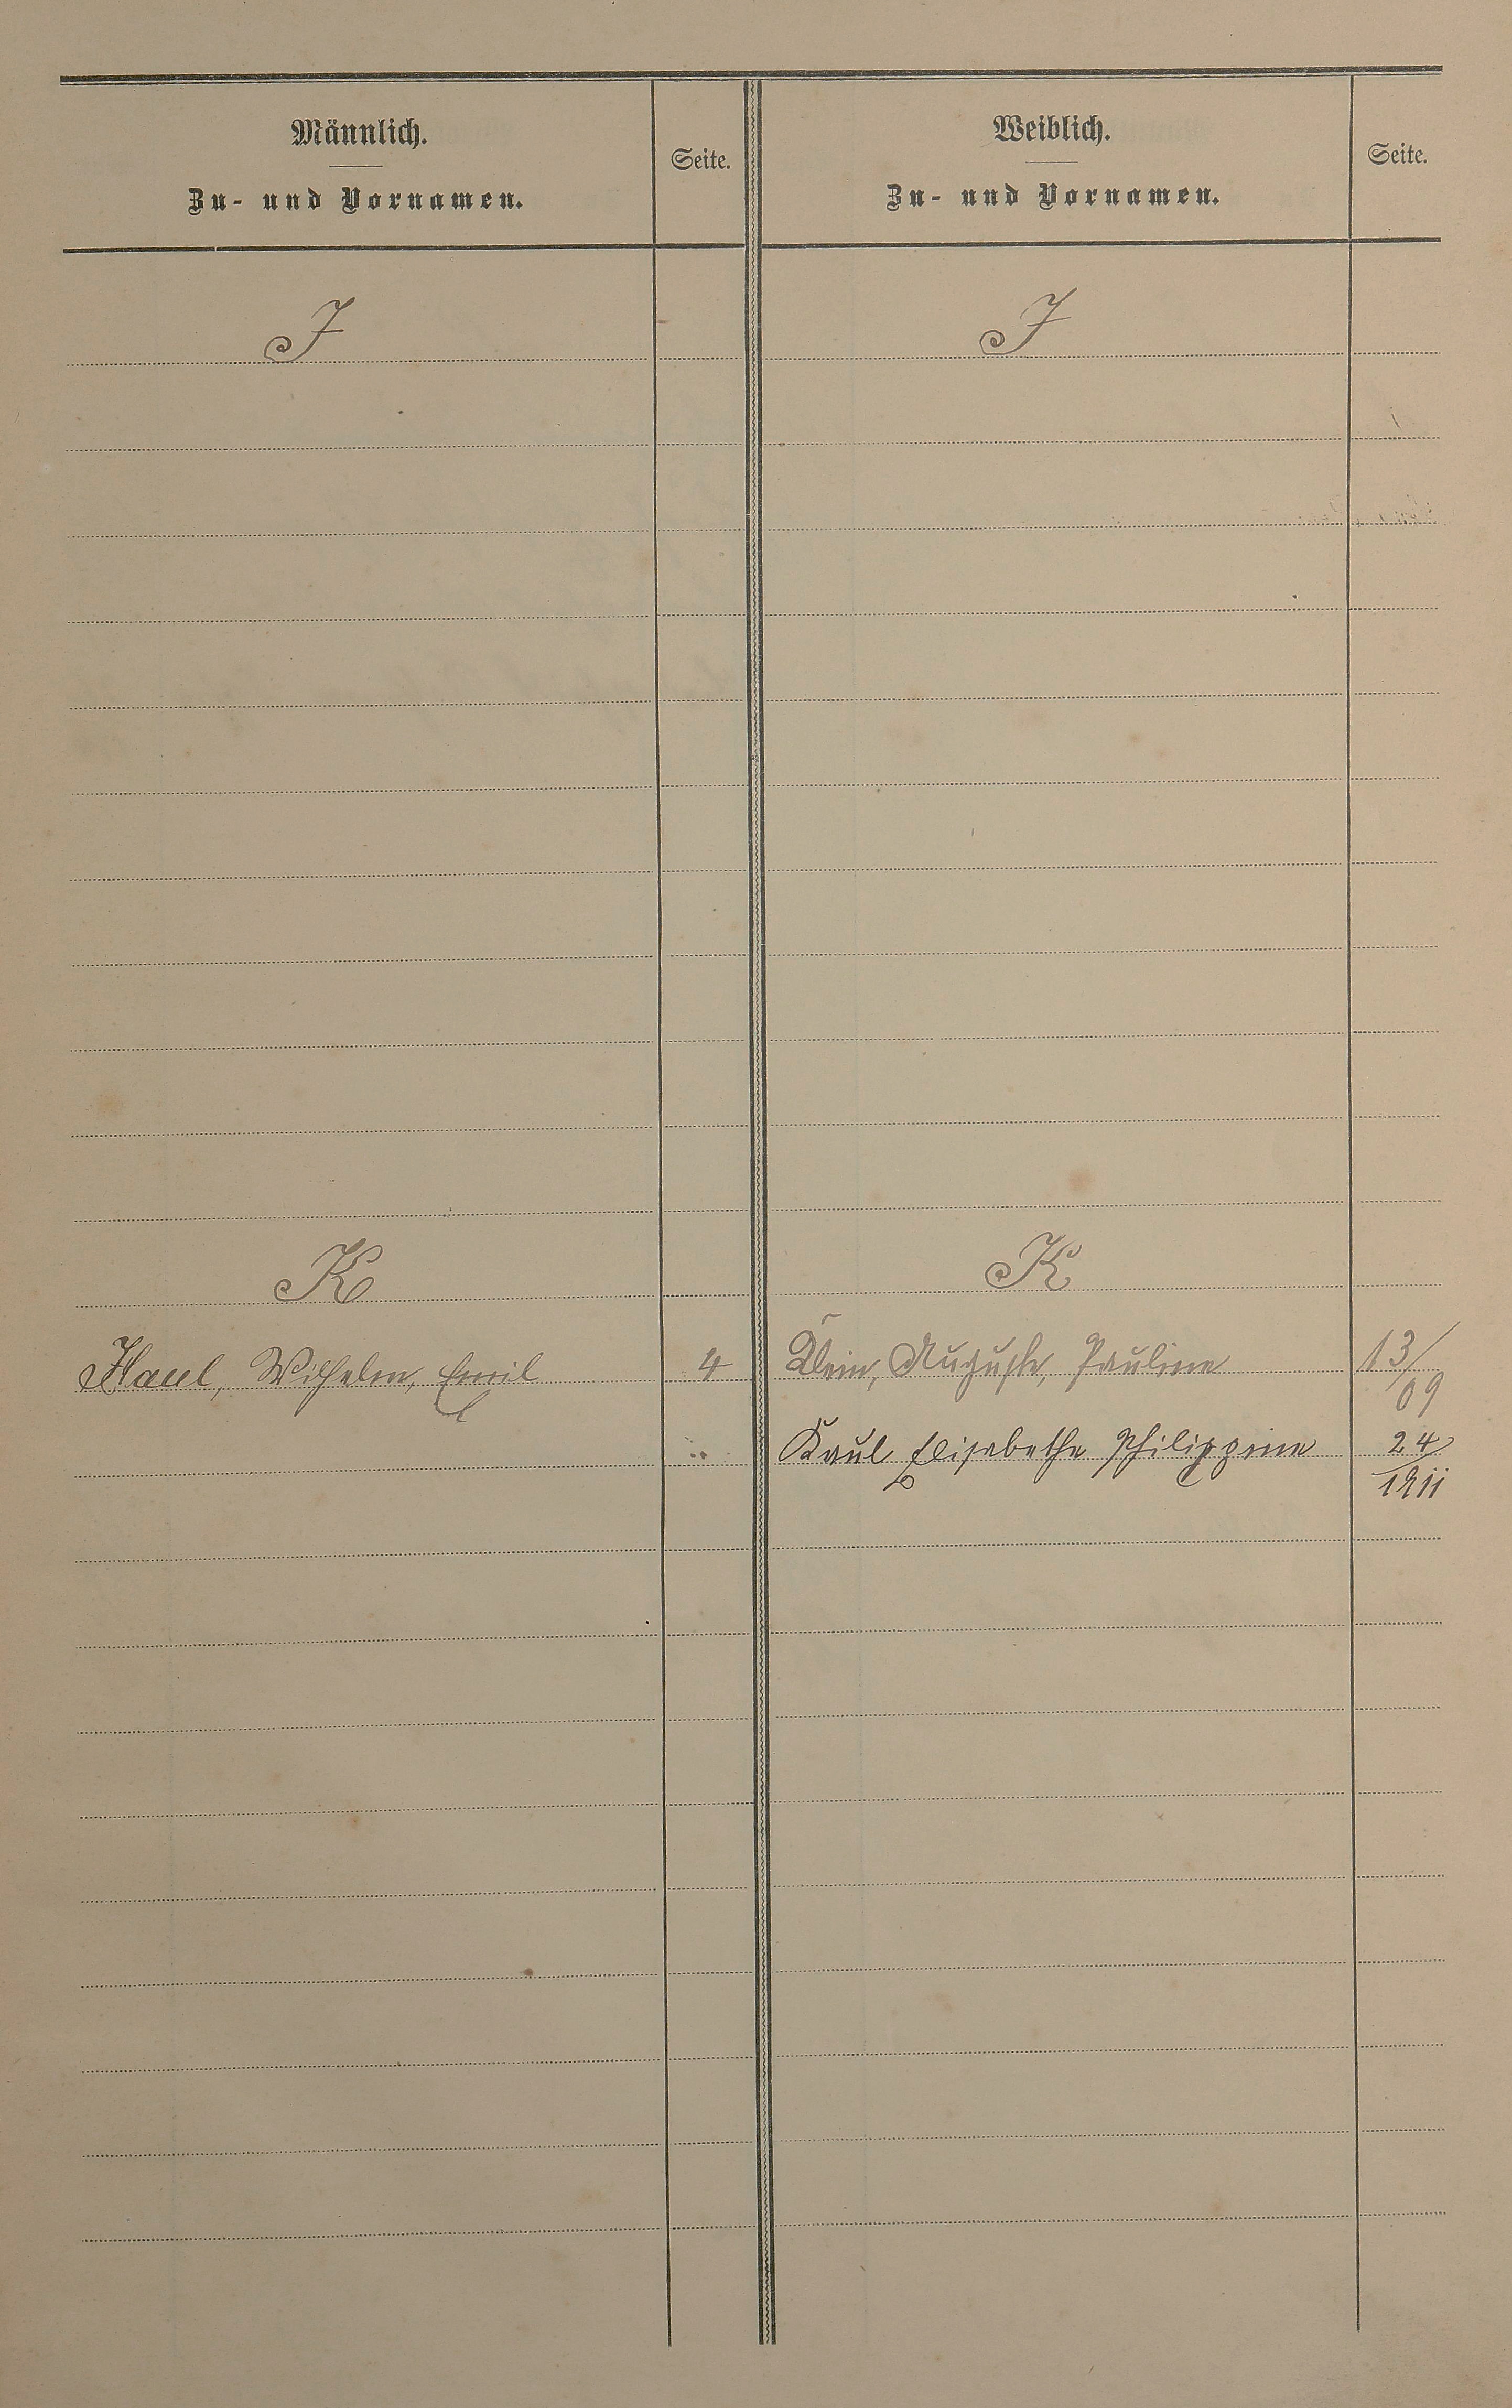 Männlich.
Zu- und Vornamen.
Seite.
Weiblich.
Zu- und Vornamen.
Seite.
J
J
K
K
Wilhelm, Emil
4
Klein, Auguste, Pauline
13/09
Kaul Elisabethe Philippine
24/1911